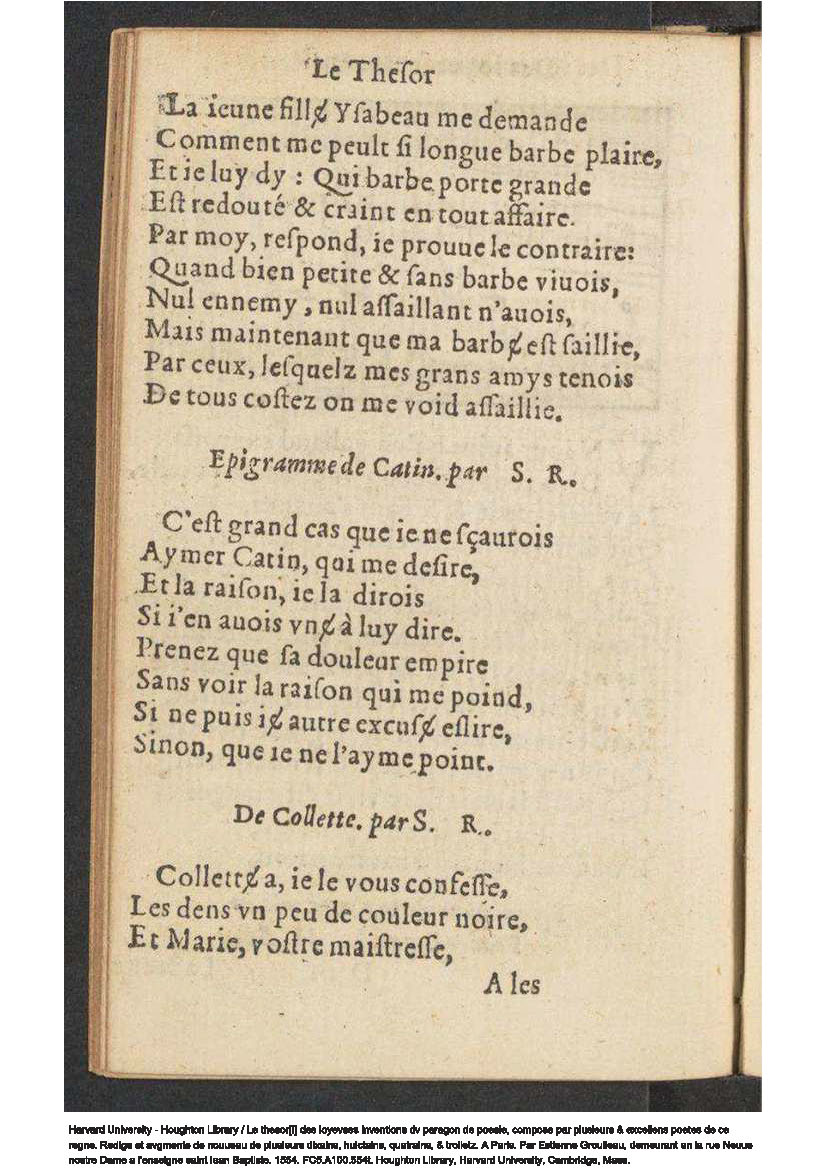 Le Theſor
La ieune fillɇ Yſabeau me demande
Comment me peult ſi longue barbe plaire,
Et ie luy dy : Qui barbe porte grande
Eſt redouté & craint en tout affaire.
Par moy, reſpond, ie prouue le contraire:
Quand bien petite & ſans barbe viuois,
Nul ennemy , nul aſſaillant n'auois,
Mais maintenant que ma barbɇ eſt ſaillie,
Par ceux, leſquelz mes grans amys tenois
De tous coſtez on me void aſſaillie.
Epigramme de Catin. par S. R.
C'eſt grand cas que ie ne ſçaurois
Aymer Catin, qui me deſire,
Et la raiſon, ie la dirois
Si i'en auois vnɇ à luy dire.
Prenez que ſa douleur empire
Sans voir la raiſon qui me poind,
Si ne puis iɇ autre excuſɇ eſlire,
Sinon, que ie ne l'ayme point.
De Collette. par S. R.
Collettɇ a, ie le vous confeſſe,
Les dens vn peu de couleur noire,
Et Marie, voſtre maiſtreſſe,
A les
Harvard University - Houghton Library / Le thesor[!] des ioyevses inventions dv paragon de poesie, compose par plusieurs & excellens poetes de ce
regne. Redige et avgmente de nouueau de plusieurs dixains, huictains, quatrains, & triolletz. A Paris. Par Estienne Groulleau, demeurant en la rue Neuue
nostre Dame a l'enseigne saint Iean Baptiste. 1554. FC5.A100.554t. Houghton Library, Harvard University, Cambridge, Mass.